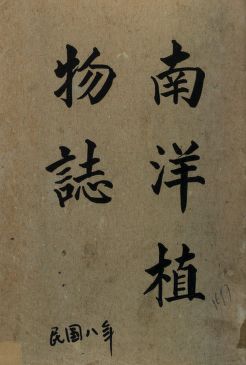 南洋植
物誌
民国八年